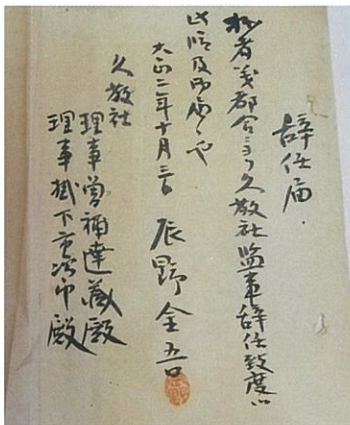 辞任届
拙者義都合ニヨリ久敬社監事辞任致度候
此段及御届候也
大正二年十月三日　辰野金吾
久敬社
理事曽禰達蔵殿
理事掛下重次郎殿